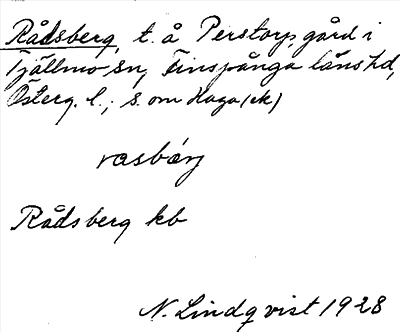 Rådsberg, t. å Perstorp, gård i
Tjällmo sn, Finspånga läns hd,
Österg. l.; s. om Haga (ek)
rasbärj
Rådsberg kb
N. Lindqvist 1928